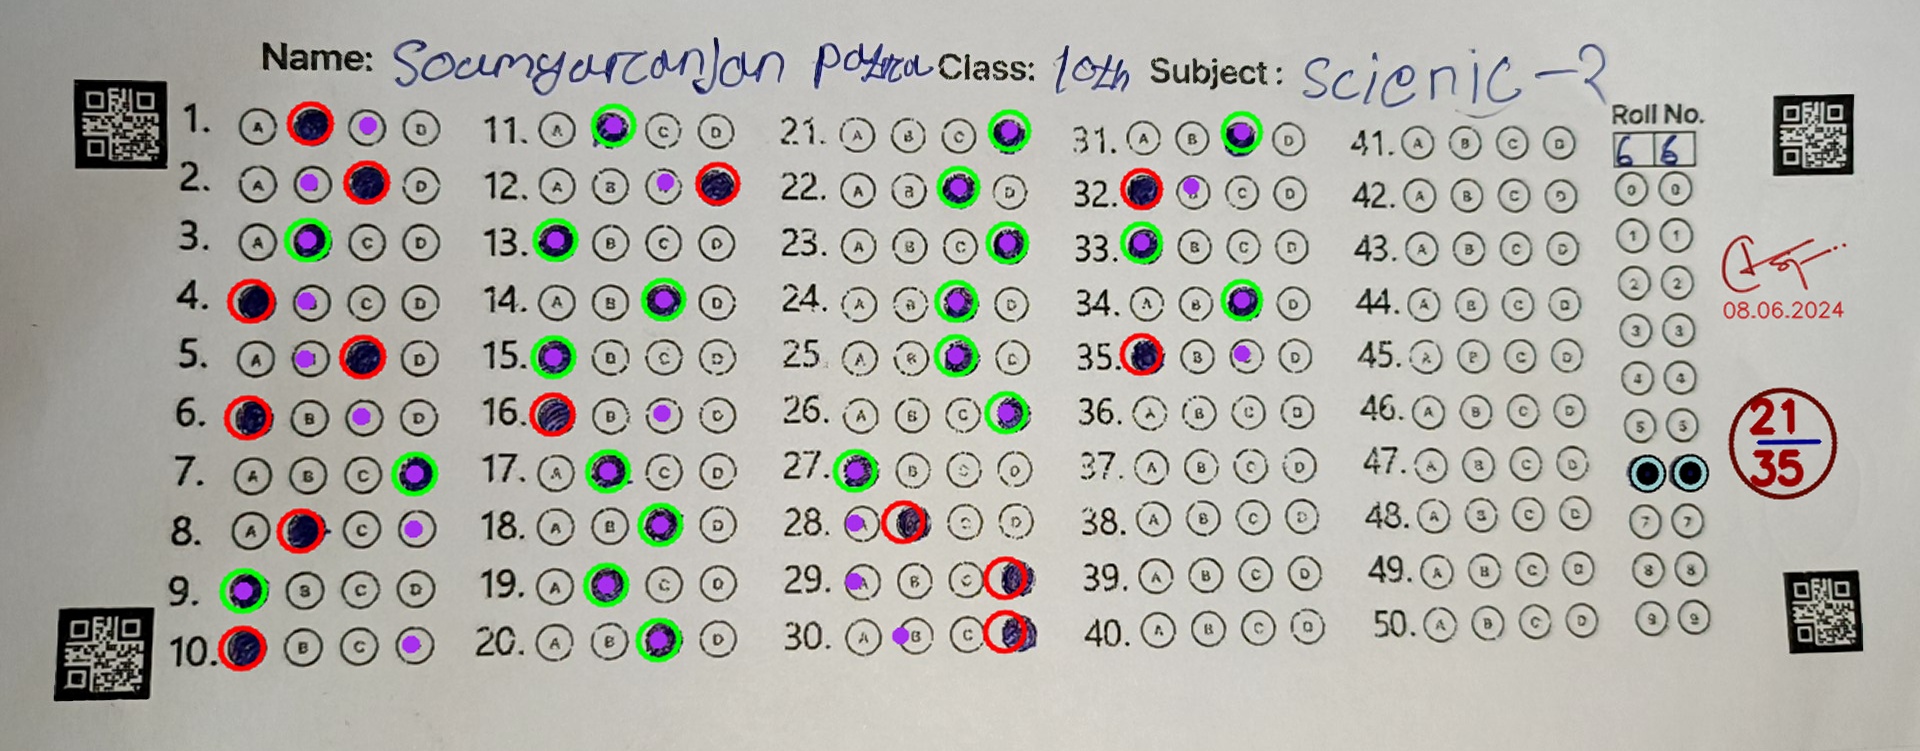 Name: Soumyaranjan Patra Class: 10th Subject: Scienic-2
Roll No.
6 6
1. A B C D
2. A B C D
3. A B C D
4. A B C D
5. A B C D
6. A B C D
7. A B C D
8. A B C D
9. A B C D
10. A B C D
11. A B C D
12. A B C D
13. A B C D
14. A B C D
15. A B C D
16. A B C D
17. A B C D
18. A B C D
19. A B C D
20. A B C D
21. A B C D
22. A B C D
23. A B C D
24. A B C D
25. A B C D
26. A B C D
27. A B C D
28. A B C D
29. A B C D
30. A B C D
31. A B C D
32. A B C D
33. A B C D
34. A B C D
35. A B C D
36. A B C D
37. A B C D
38. A B C D
39. A B C D
40. A B C D
41. A B C D
42. A B C D
43. A B C D
44. A B C D
45. A B C D
46. A B C D
47. A B C D
48. A B C D
49. A B C D
50. A B C D
0 0
1 1
2 2
3 3
4 4
5 5
7 7
8 8
9 9
08.06.2024
21
35